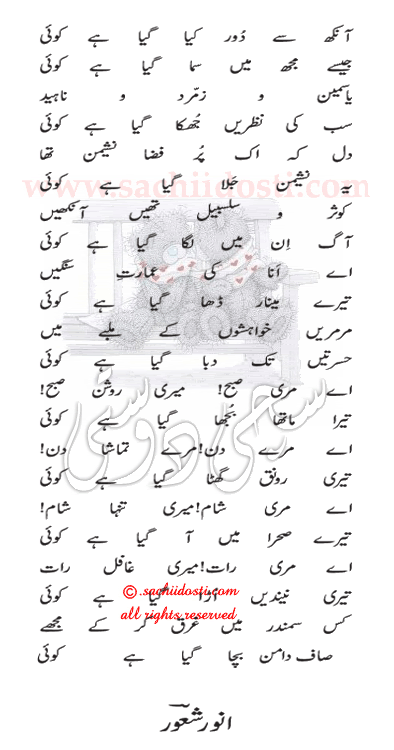 آنکھ سے دُور کیا گیا ہے کوئی
جیسے مجھ میں سما گیا ہے کوئی
یاسمین و زمّرد و ناہید
سب کی نظریں جُھکا گیا ہے کوئی
دل کہ اک پُر فضا نشیمن تھا
یہ نشیمن جلا گیا ہے کوئی
www.sachiidosti.com
کوثر و سلسبیل تھیں آنکھیں
آگ اِن میں لگا گیا ہے کوئی
اے اَنا کی عمارتِ سنگیں
تیرے مینار ڈھا گیا ہے کوئی
مرمریں خواہشوں کے ملبے میں
حسرتیں تک دبا گیا ہے کوئی
اے مری صبح! میری روشن صبح!
سچی دوستی
تیرا ماتھا بُجھا گیا ہے کوئی
اے مرے دن!مرے تماشا دن!
تیری رونق گھٹا گیا ہے کوئی
اے مری شام!میری تنہا شام!
تیرے صحرا میں آ گیا ہے کوئی
اے مری رات!میری غافل رات
© .sachiidosti.com
تیری نیندیں اُڑا گیا ہے کوئی
all rights reserved
کس سمندر میں غرق کر کے مجھے
صاف دامن بچا گیا ہے کوئی
انور شعور